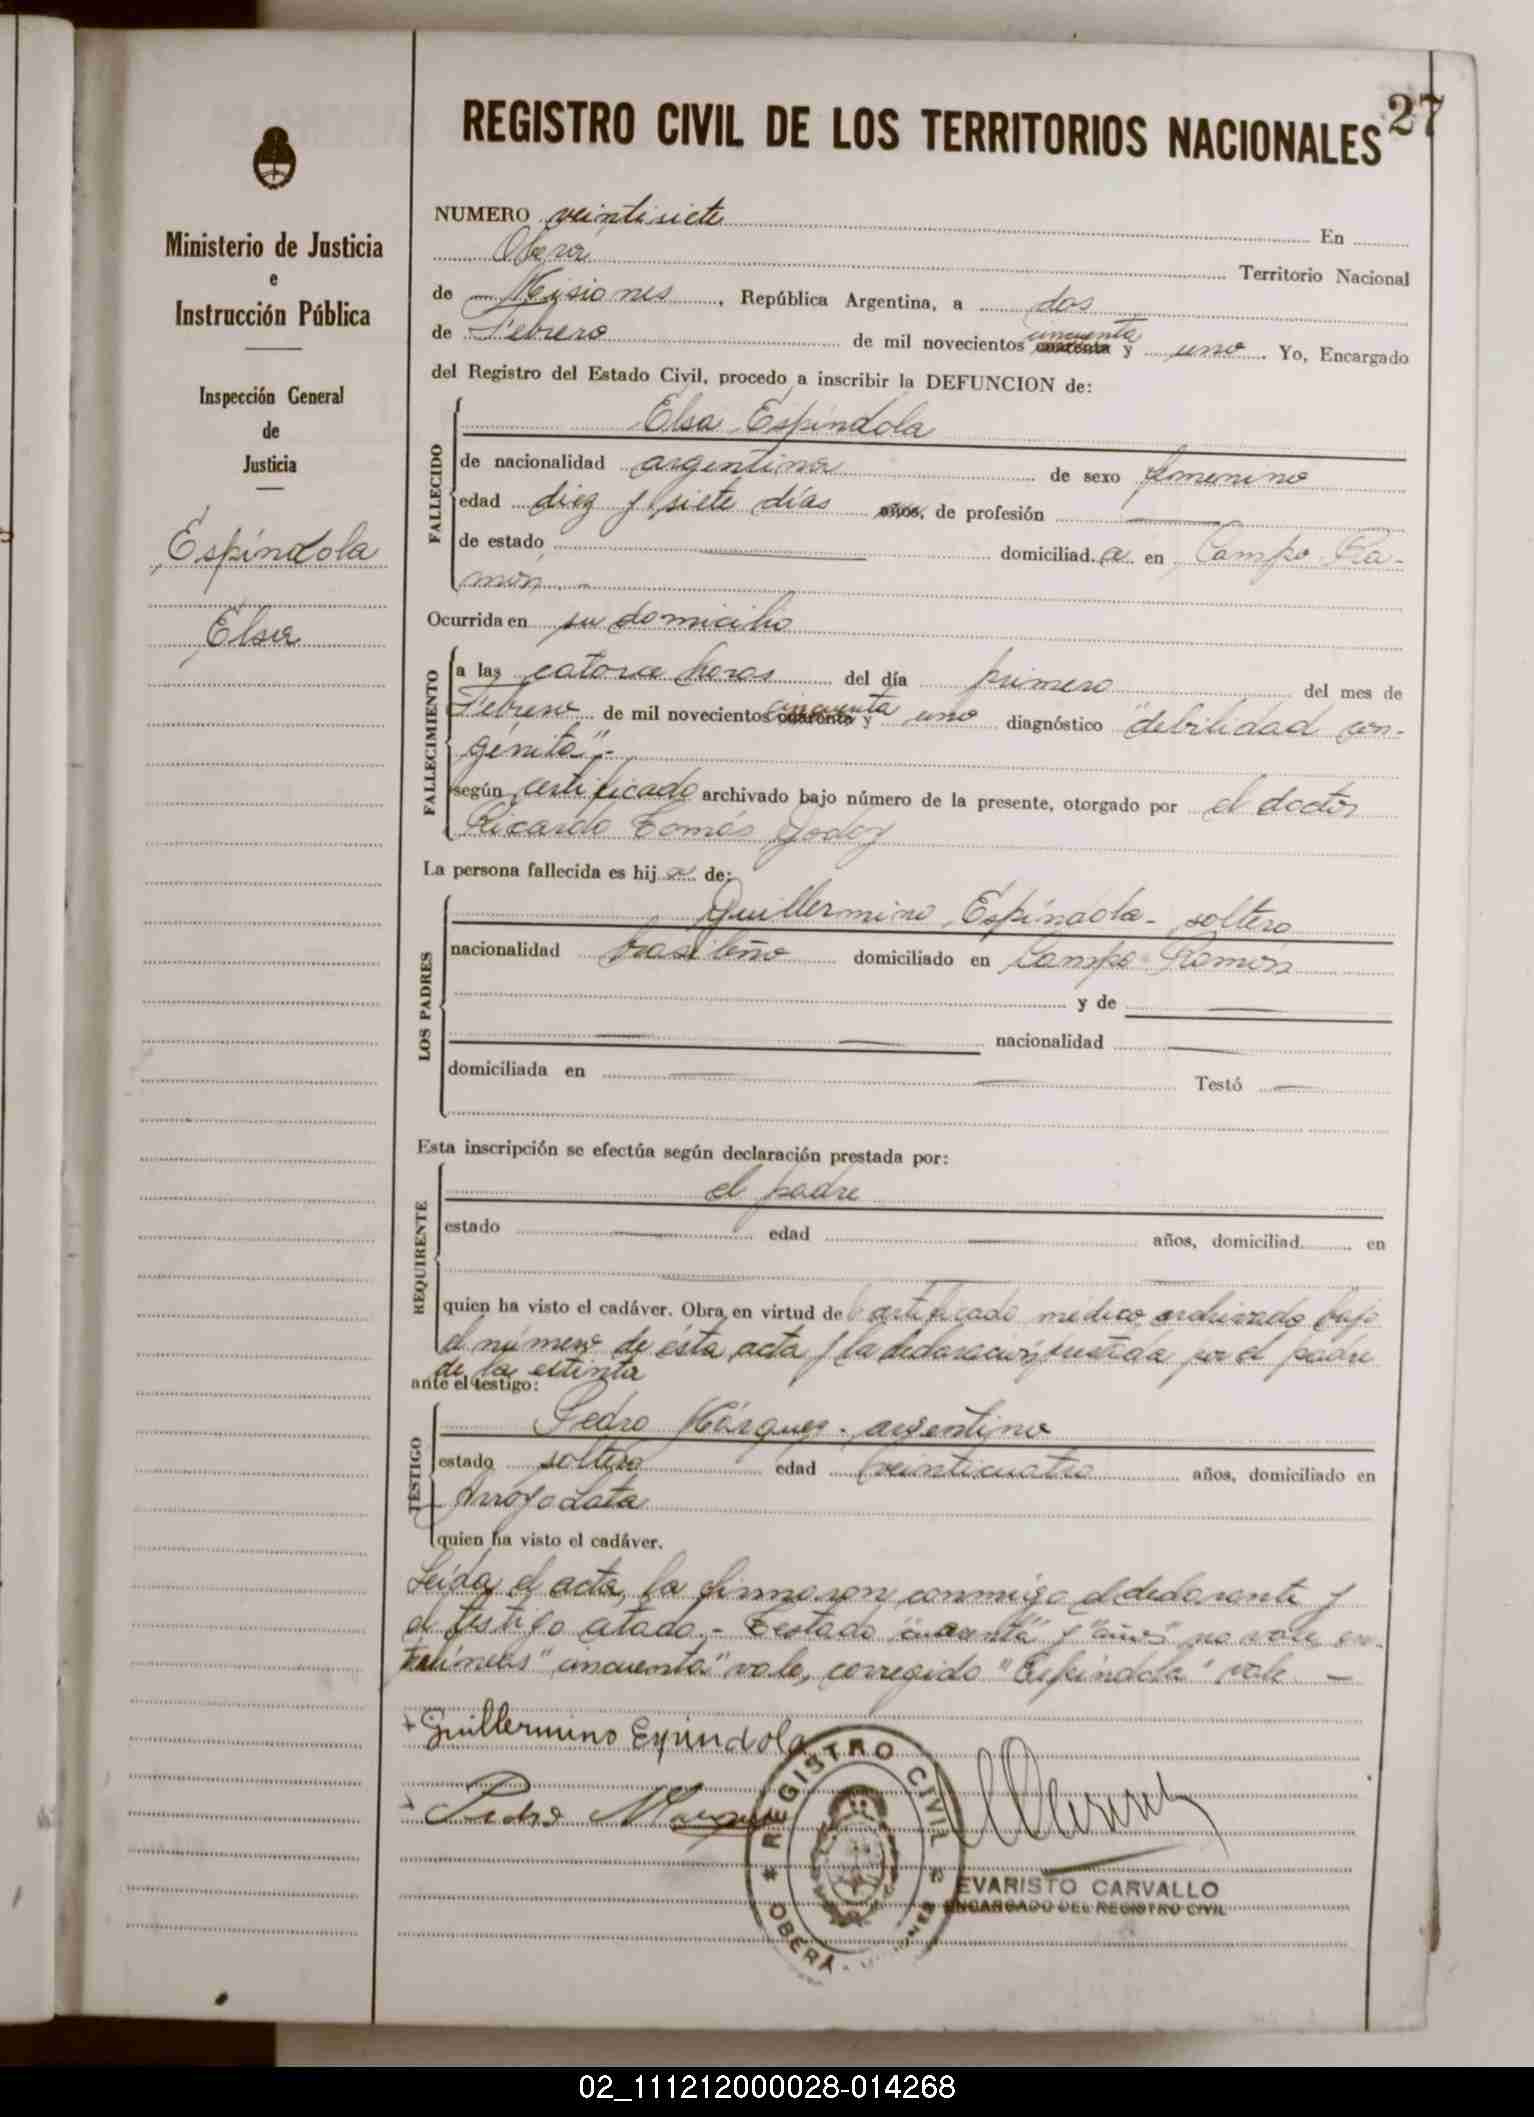 27
REGISTRO CIVIL DE LOS TERRITORIOS NACIONALES
Ministerio de Justicia
e
Instrucción Pública
Inspección General
de
Justicia
Espíndola
Elsa
NUMERO veintisiete En
Oberá Territorio Nacional
de Misiones, República Argentina, a dos
de Febrero de mil novecientos cuarenta cincuenta y uno. Yo, Encargado
del Registro del Estado Civil, procedo a inscribir la DEFUNCION de:
FALLECIDO
Elsa Espíndola
de nacionalidad argentina de sexo femenino
edad diez y siete días años, de profesión
de estado domiciliad.a en Campo Ra-
món.-
Ocurrida en su domicilio
FALLECIMIENTO
a las catorce horas del día primero del mes de
Febrero de mil novecientos cuarenta cincuenta y uno diagnóstico "debilidad con-
génita".-
según certificado archivado bajo número de la presente, otorgado por el doctor
Ricardo Tomás Godoy
La persona fallecida es hij a de:
LOS PADRES
Guillermino Espíndola - soltero
nacionalidad brasileño domiciliado en Campo Ramón
y de
nacionalidad
domiciliada en Testó
Esta inscripción se efectúa según declaración prestada por:
REQUIRENTE
el padre
estado edad años, domiciliad en
quien ha visto el cadáver. Obra en virtud de certificado médico archivado bajo
el número de ésta acta y la declaración prestada por el padre
de la extinta
ante el testigo:
TESTIGO
Pedro Márquez - argentino
estado soltero edad veinticuatro años, domiciliado en
Arroyo Lata
quien ha visto el cadáver.
Leída el acta, la firmaron conmigo el declarante y
el testigo citado.- Testado "cuarenta" y "años" no vale en-
trelíneas "cincuenta" vale, corregido "Espíndola" vale. -
Guillermino Espindola
Pedro Marquez
REGISTRO CIVIL
OBERÁ
EVARISTO CARVALLO
ENCARGADO DEL REGISTRO CIVIL
02_111212000028-014268